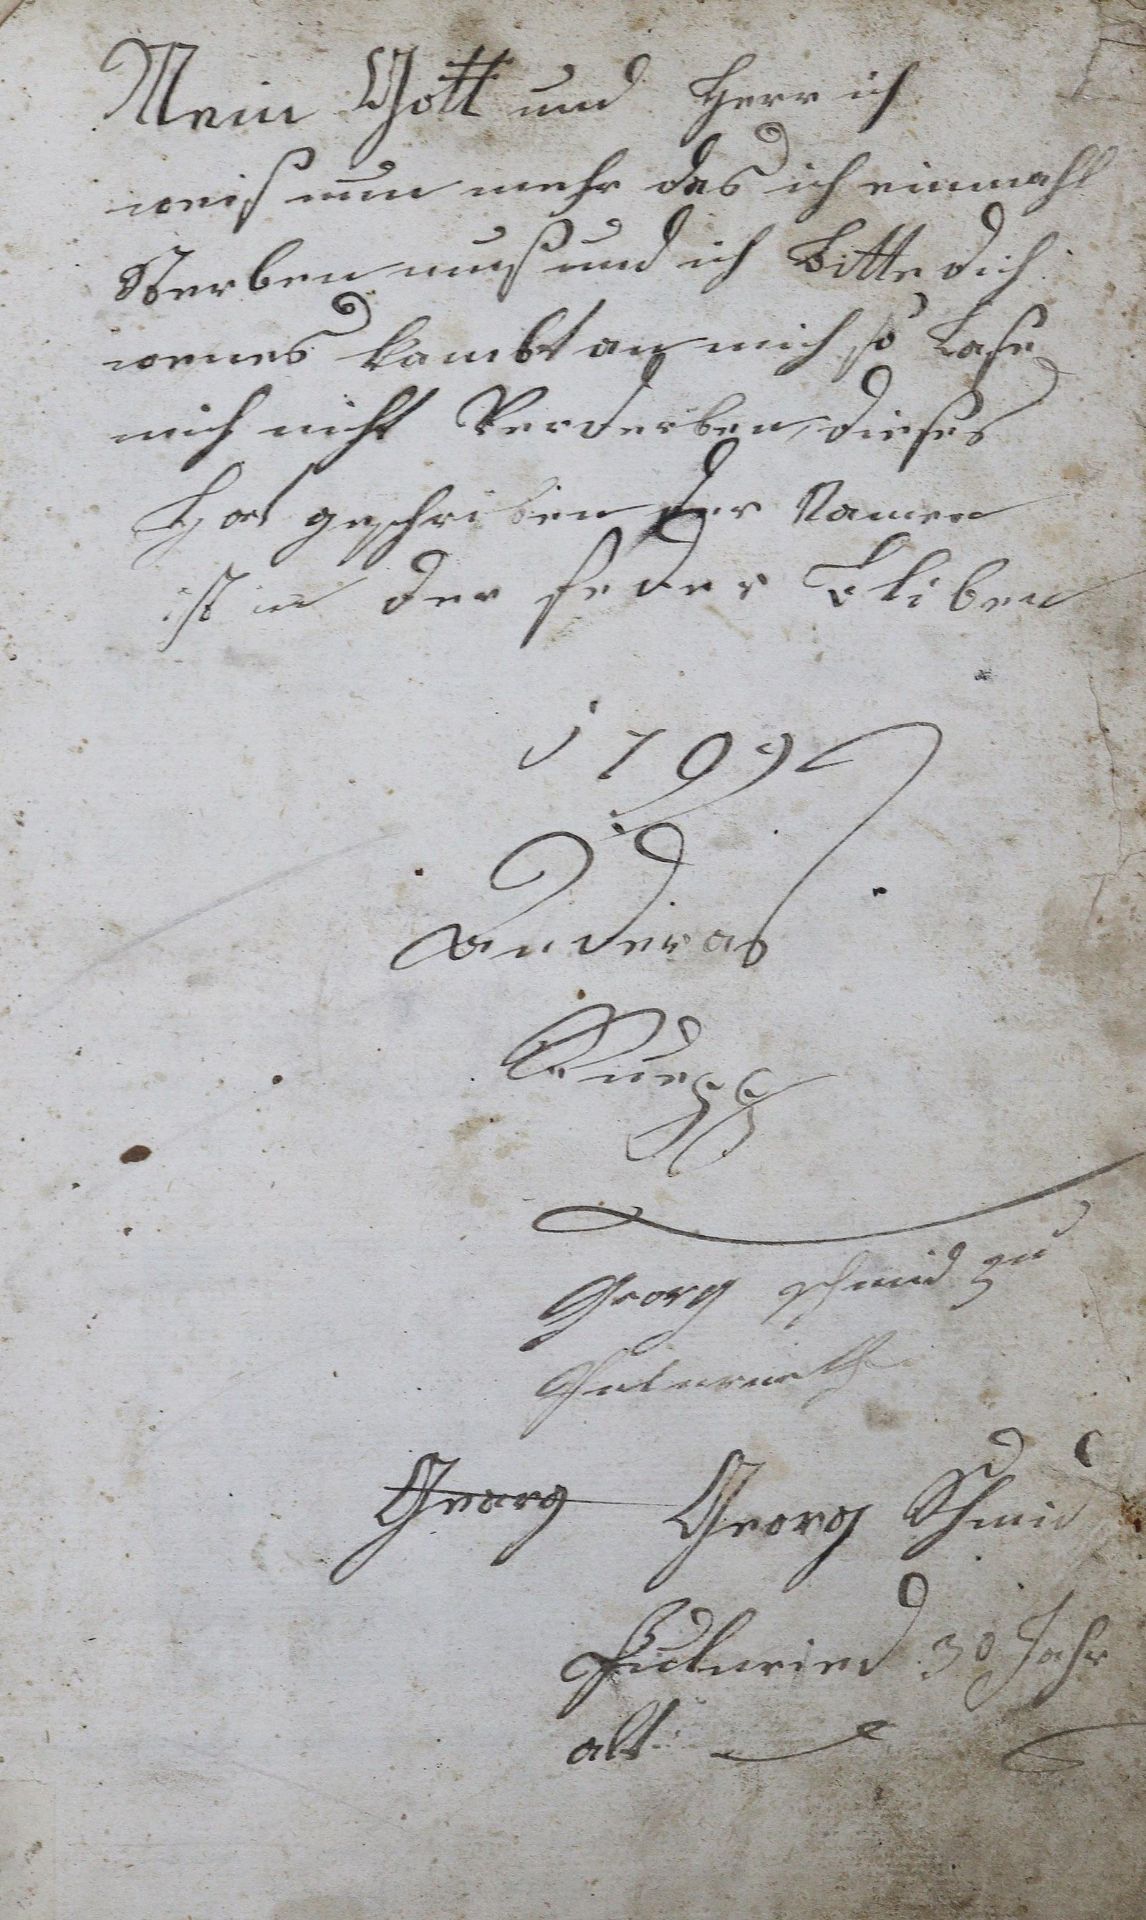 Mein Gott und Herr ich
weis nun mehr das ich einmahl
Sterben muß und ich Bitte dich
wenes kambt an mich so Lase
mich nicht Verderben dieses
Hat geschriben der Namen
ist in der feder Bliben
1799
Andereas
Ruepp
Georg schmid zu

Georg Georg Schmid
30 Jahr
alt